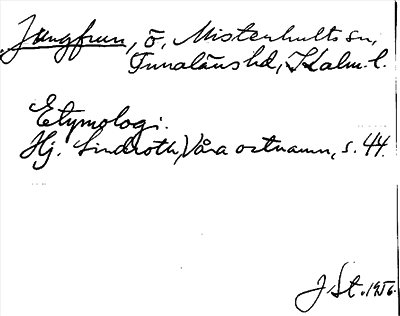 Jungfrun, ö, Misterhults sn,
Tunaläns hd, Kalm. l.
Etymologi.
Hj. Lindroth, Våra ortnamn, s. 44.
J. St. 1956.